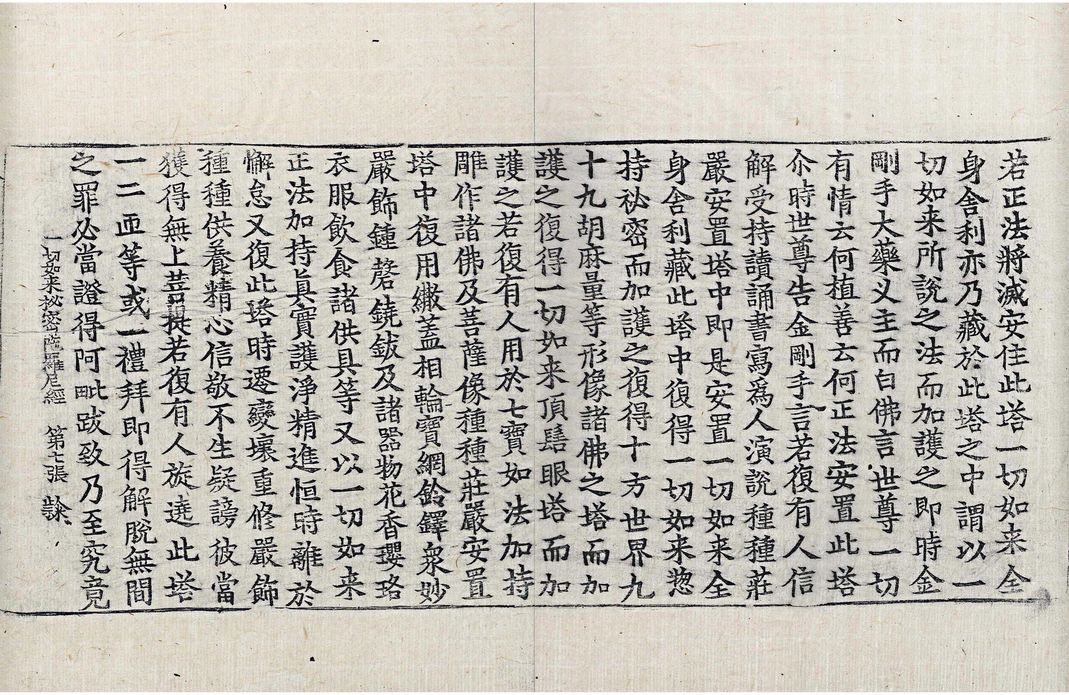 若正法將滅安住此塔一切如来全
身舎利亦乃藏於此塔之中謂以一
切如来所說之法而加護之即時金
剛手大藥义主而白佛言世尊一切
有情云何植善云何正法安置此塔
尒時世尊告金剛手言若復有人信
解受持讀誦書寫爲人演說種種莊
嚴安置塔中即是安置一切如来全
身舎利藏此塔中復得一切如来惣
持祕密而加護之復得十方世界九
十九胡麻量等形像諸佛之塔而加
護之復得一切如来頂髻眼塔而加
護之若復有人用於七寶如法加持
雕作諸佛及菩薩像種種莊嚴安置
塔中復用繖盖相輪寶網鈴鐸衆妙
嚴飾鍾磬鐃鈸及諸器物花香瓔珞
衣服飲食諸供具等又以一切如来
正法加持真實護淨精進恒時離於
懈怠又復此塔時遷變壞重修嚴飾
種種供養精心信敬不生疑謗彼當
獲得無上菩提若復有人旋遶此塔
一二帀等或一禮拜即得解脫無間
之罪必當證得阿毗跋致乃至究竟
一切如来祕密陁羅尼經 第七張